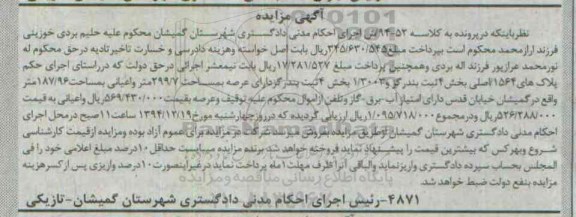 آگهی مزایده
نظر باینکه در پرونده به کلاسه ۵۲-۹۴ این اجرای احکام مدنی دادگستری شهرستان گمیشان محکوم علیه حلیم بردی خوزینی
فرزند اراز محمد محکوم است بپرداخت مبلغ ۳۴۵/۶۳۰/۵۴۵ ریال بابت اصل خواسته وهزینه دادرسی و خسارت تاخیر تادیه در حق محکوم له
نور محمد عرازپور فرزند اله بردی وهمچنین پرداخت مبلغ ۱۷/۲۸۱/۵۲۷ ریال بابت نیمعشر اجرائی در حق دولت که در راستای اجرای حکم
پلاک های ۱۵۶۴ اصلی بخش ۴ ثبت بندر گز و ۱/۳۰۰۳ بخش ۴ ثبت بندر گز دارای عرصه بمساحت ۲۹۹/۷ متر واعیانی بمساحت ۱۸۷/۹۶ متر
واقع در گمیشان خیابان قدس دارای امتیاز آب - برق - گاز و تلفن از اموال محکوم علیه توقیف وعرصه بقیمت ۵۶۹/۴۳۰/۰۰۰ ریال واعیانی به قیمت
۵۲۶/۲۸۸/۰۰۰ ریال ودر مجموع ۱/۰۹۵/۷۱۸/۰۰۰ ریال ارزیابی گردیده که در روز چهارشنبه مورخ ۱۳۹۴/۱۲/۱۹ ساعت ۱۱ صبح در محل اجرای
احکام مدنی دادگستری شهرستان گمیشان از طریق مزایده بفروش می‌رسد شرکت در مزایده برای عموم آزاد بوده ومزایده از قیمت کارشناسی
شروع وبهر کس که بیشترین قیمت را پیشنهاد نماید فروخته خواهد شد برنده مزایده میبایست حداقل ۱۰درصد مبلغ اعلامی خود را فی
المجلس بحساب سپرده دادگستری واریز نماید والباقی آنرا ظرف مهلت ۱ ماه پرداخت نماید در غیر اینصورت ۱۰درصد واریزی پس از کسر هزینه
مزایده بنفع دولت ضبط خواهد شد.
۴۸۷۱-رئیس اجرای احکام مدنی دادگستری شهرستان گمیشان-تازیکی